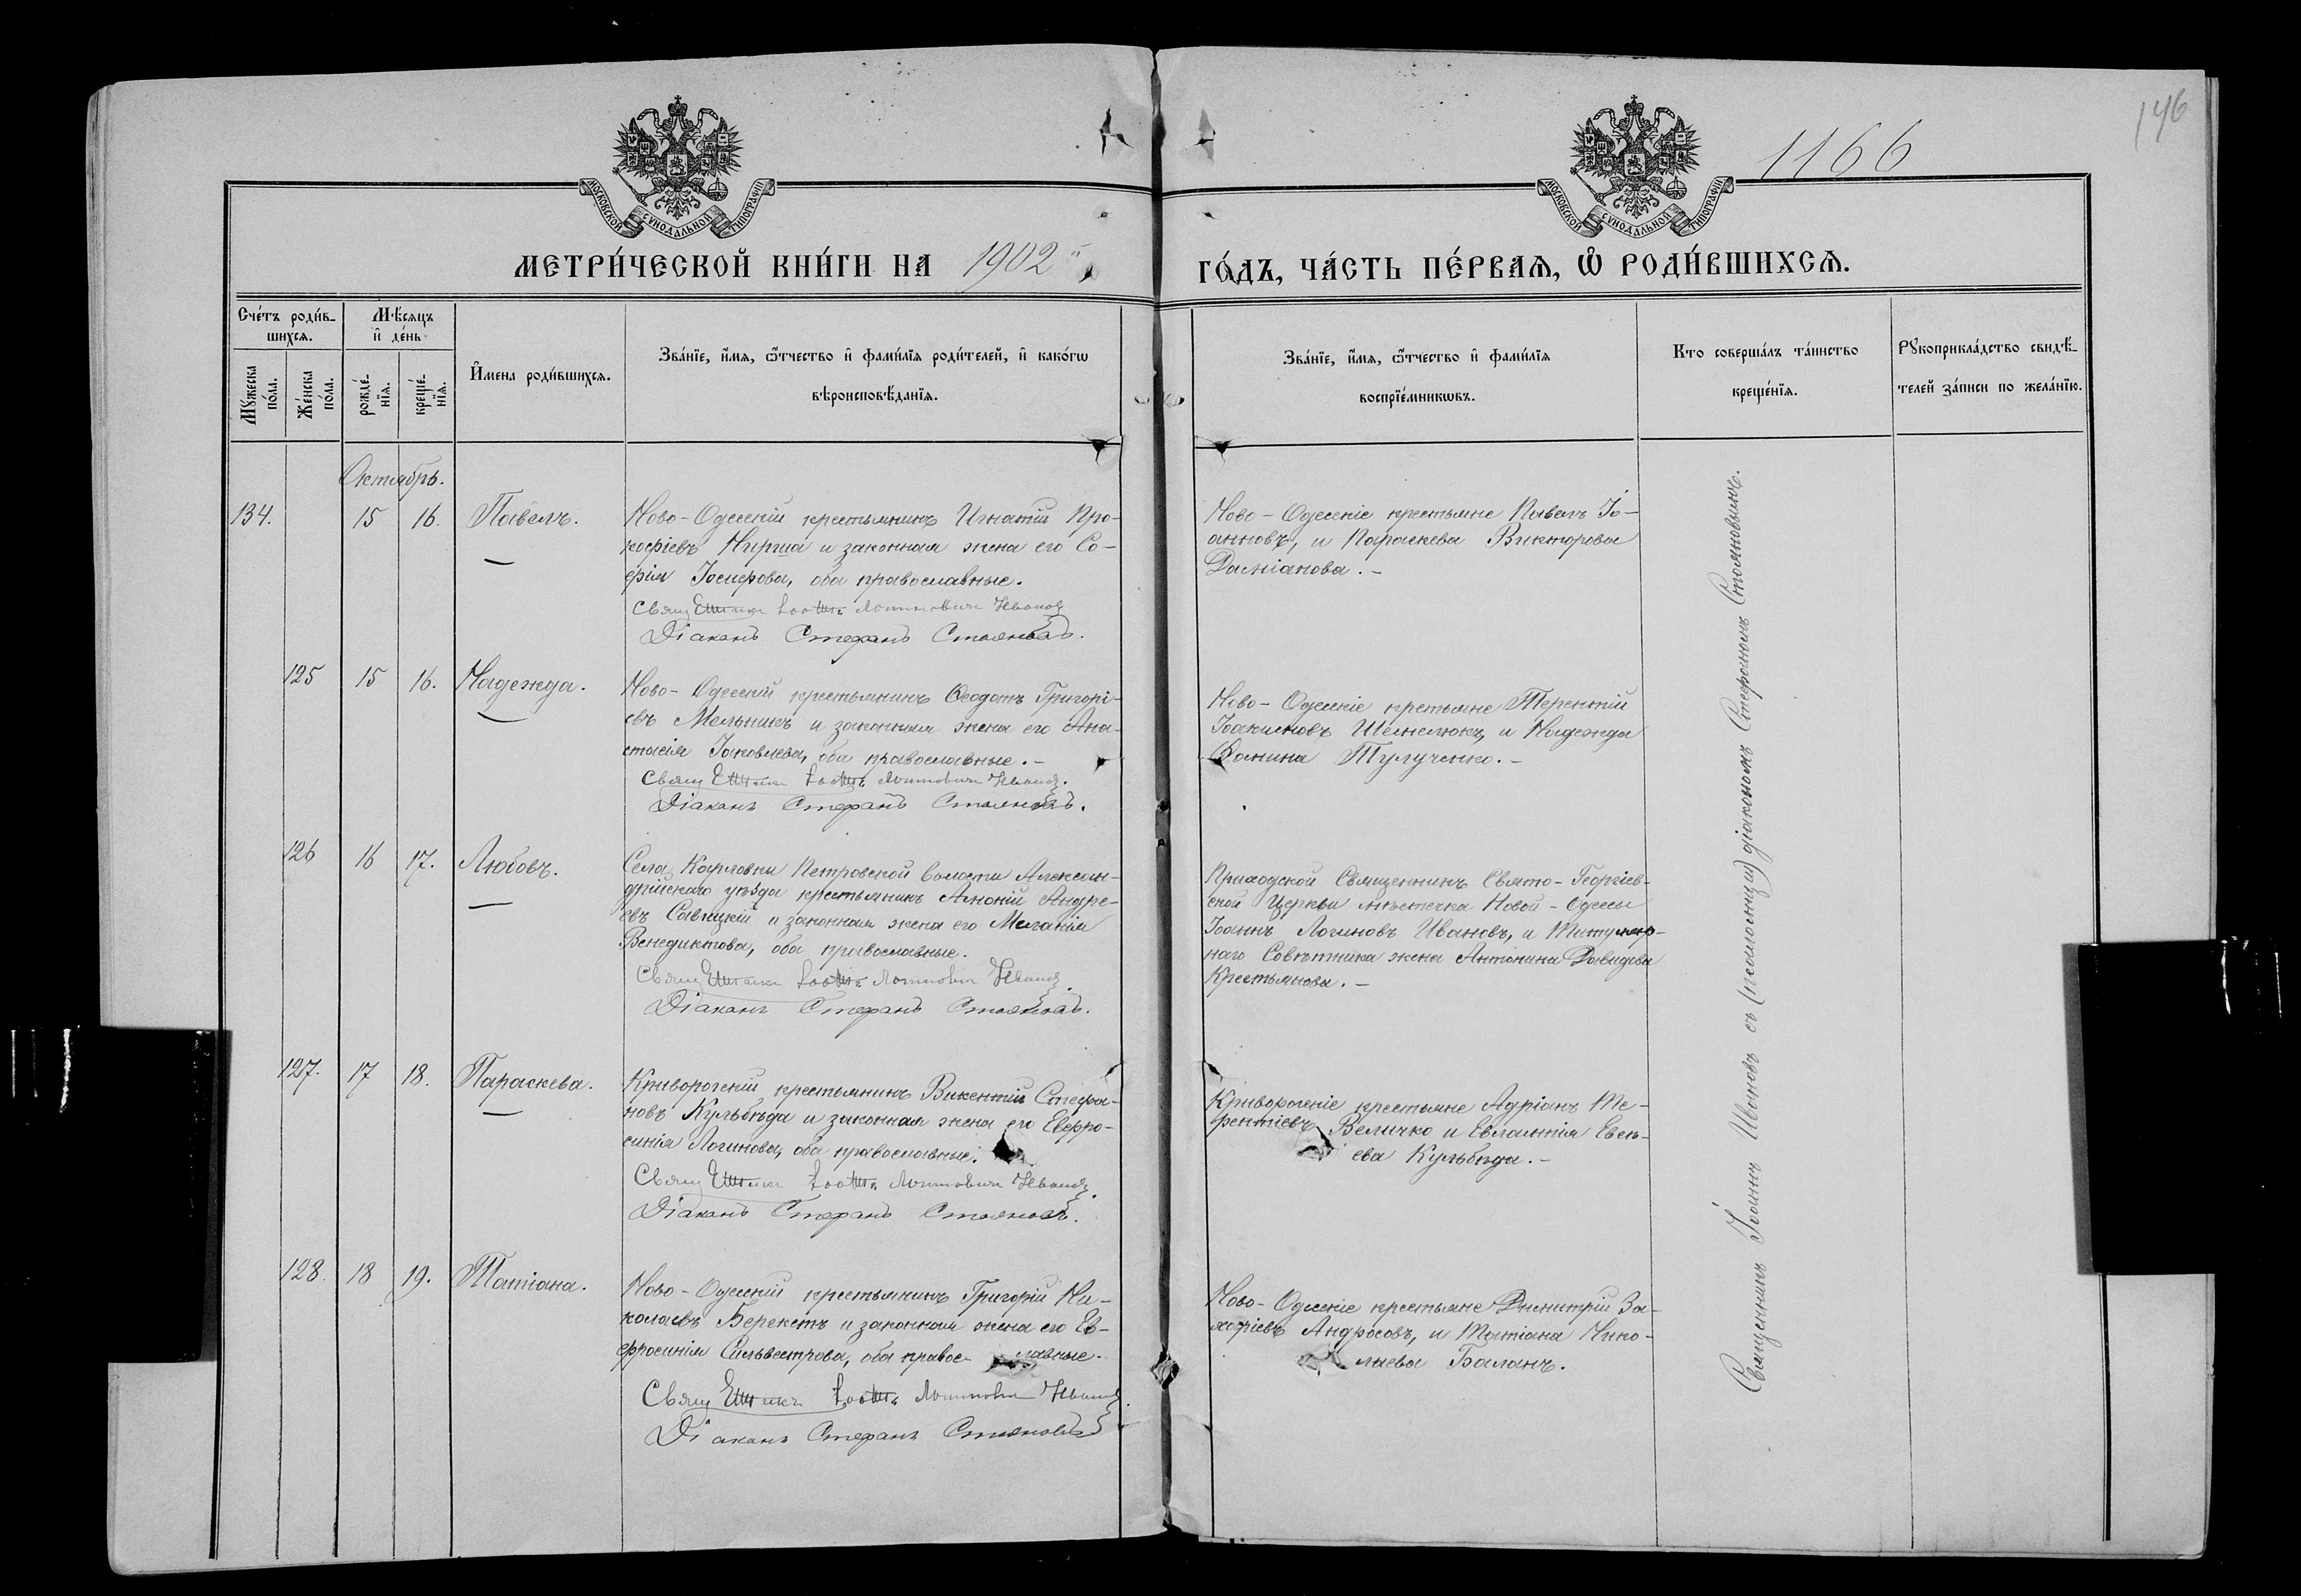 146
1166
МОСКОВСКОЙ СѴНОДАЛЬНОЙ ТИПОГРАФІИ
МОСКОВСКОЙ СѴНОДАЛЬНОЙ ТИПОГРАФІИ
МЕТРИ́ЧЕСКОЙ КНИ́ГИ НА 1902
ГО́ДЪ, ЧА́СТЬ ПЕ́РВАЯ, Ѽ РОДИ́ВШИХСЯ.
Сче́тъ роди́в-
шихся.
Мѣсяцъ
и де́нь
Мужеска
по́ла.
Же́нска
по́ла.
рожде́-
нїя.
креще́-
нїя.
И́мена роди́вшихся.
Зва́нїе, и́мя, ѻ́тчество и фами́лїя роди́телей, и како́гѡ
вѣроисповѣ́данїя.
Зва́нїе, и́мя, ѻ́тчество и фами́лїя
воспрїе́мникѡвъ.
Кто соверша́лъ та́инство
креще́нїя.
Рукоприкла́дство свидѣ́-
телей за́писи по жела́нїю.
Октябрь.
134. 15 16. Павелъ.
Ново-Одесскій крестьянинъ Игнатій Про-
кофіевъ Нирша и законная жена его Со-
фія Іосифова, оба православные.
Діаконъ Стефанъ Стояновъ.
Ново-Одесскіе крестьяне Павелъ Іо-
анновъ, и Параскева Викторова
Даміанова.-
125 15 16. Надежда.
Ново-Одесскій крестьянинъ Ѳеодотъ Григорі-
евъ Мельникъ и законная жена его Ана-
стасія Іаковлева, оба православные.-
Діаконъ Стефанъ Стояновъ.
Ново-Одесскіе крестьяне Терентій
Іоакимовъ Шемелюкъ, и Надежда
Фомина Тулученко.-
126 16 17. Любовь.
Села Карловки Петровской волости Алексан-
дрійскаго уѣзда крестьянинъ Антоній Андре-
евъ Савицкій и законная жена его Меланія
Венедиктова, оба православные.
Діаконъ Стефанъ Стояновъ.
Приходской Священникъ Свято-Георгіев-
ской Церкви мѣстечка Новой-Одессы
Іоаннъ Логиновъ Ивановъ, и Титуляр-
наго Совѣтника жена Антонина Давидова
Крестьянова.-
127. 17 18. Параскева.
Криворогскій крестьянинъ Викентій Стефа-
новъ Кульбѣда и законная жена его Евфро-
синія Логинова, оба православные.
Діаконъ Стефанъ Стояновъ.
Криворогскіе крестьяне Адріанъ Те-
рентіевъ Величко и Евлампія Евсѣ-
ева Кульбѣда.-
128. 18 19. Татіана.
Ново-Одесскій крестьянинъ Григорій Ни-
колаевъ Берекетъ и законная жена его Ев-
фросинія Сильвестрова, оба православные.
Діаконъ Стефанъ Стояновъ
Ново-Одесскіе крестьяне Димитрій За-
харіевъ Андросовъ, и Татіана Нико-
лаева Баланъ.
Священникъ Іоаннъ Ивановъ съ (псаломщи) діакономъ Стефаномъ Стояновымъ.